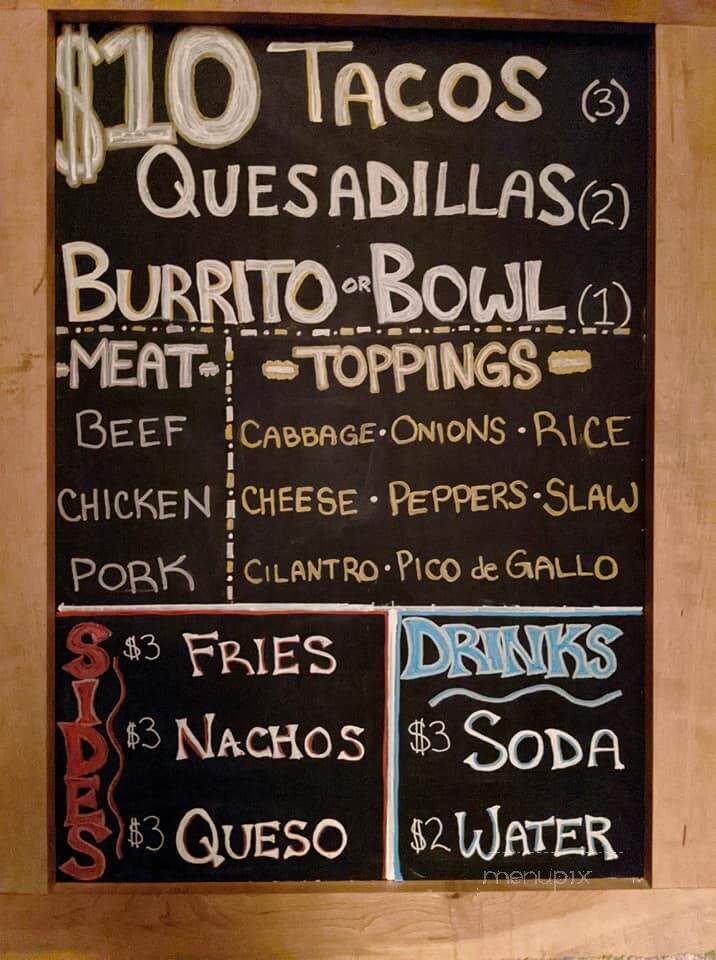 $10 TACOS (3)
QUESADILLAS (2)
BURRITO OR BOWL (1)
-MEAT-
BEEF
CHICKEN
PORK
-TOPPINGS-
CABBAGE • ONIONS • RICE
CHEESE • PEPPERS • SLAW
CILANTRO • PICO de GALLO
SIDES
$3 FRIES
$3 NACHOS
$3 QUESO
DRINKS
$3 SODA
$2 WATER
menupix